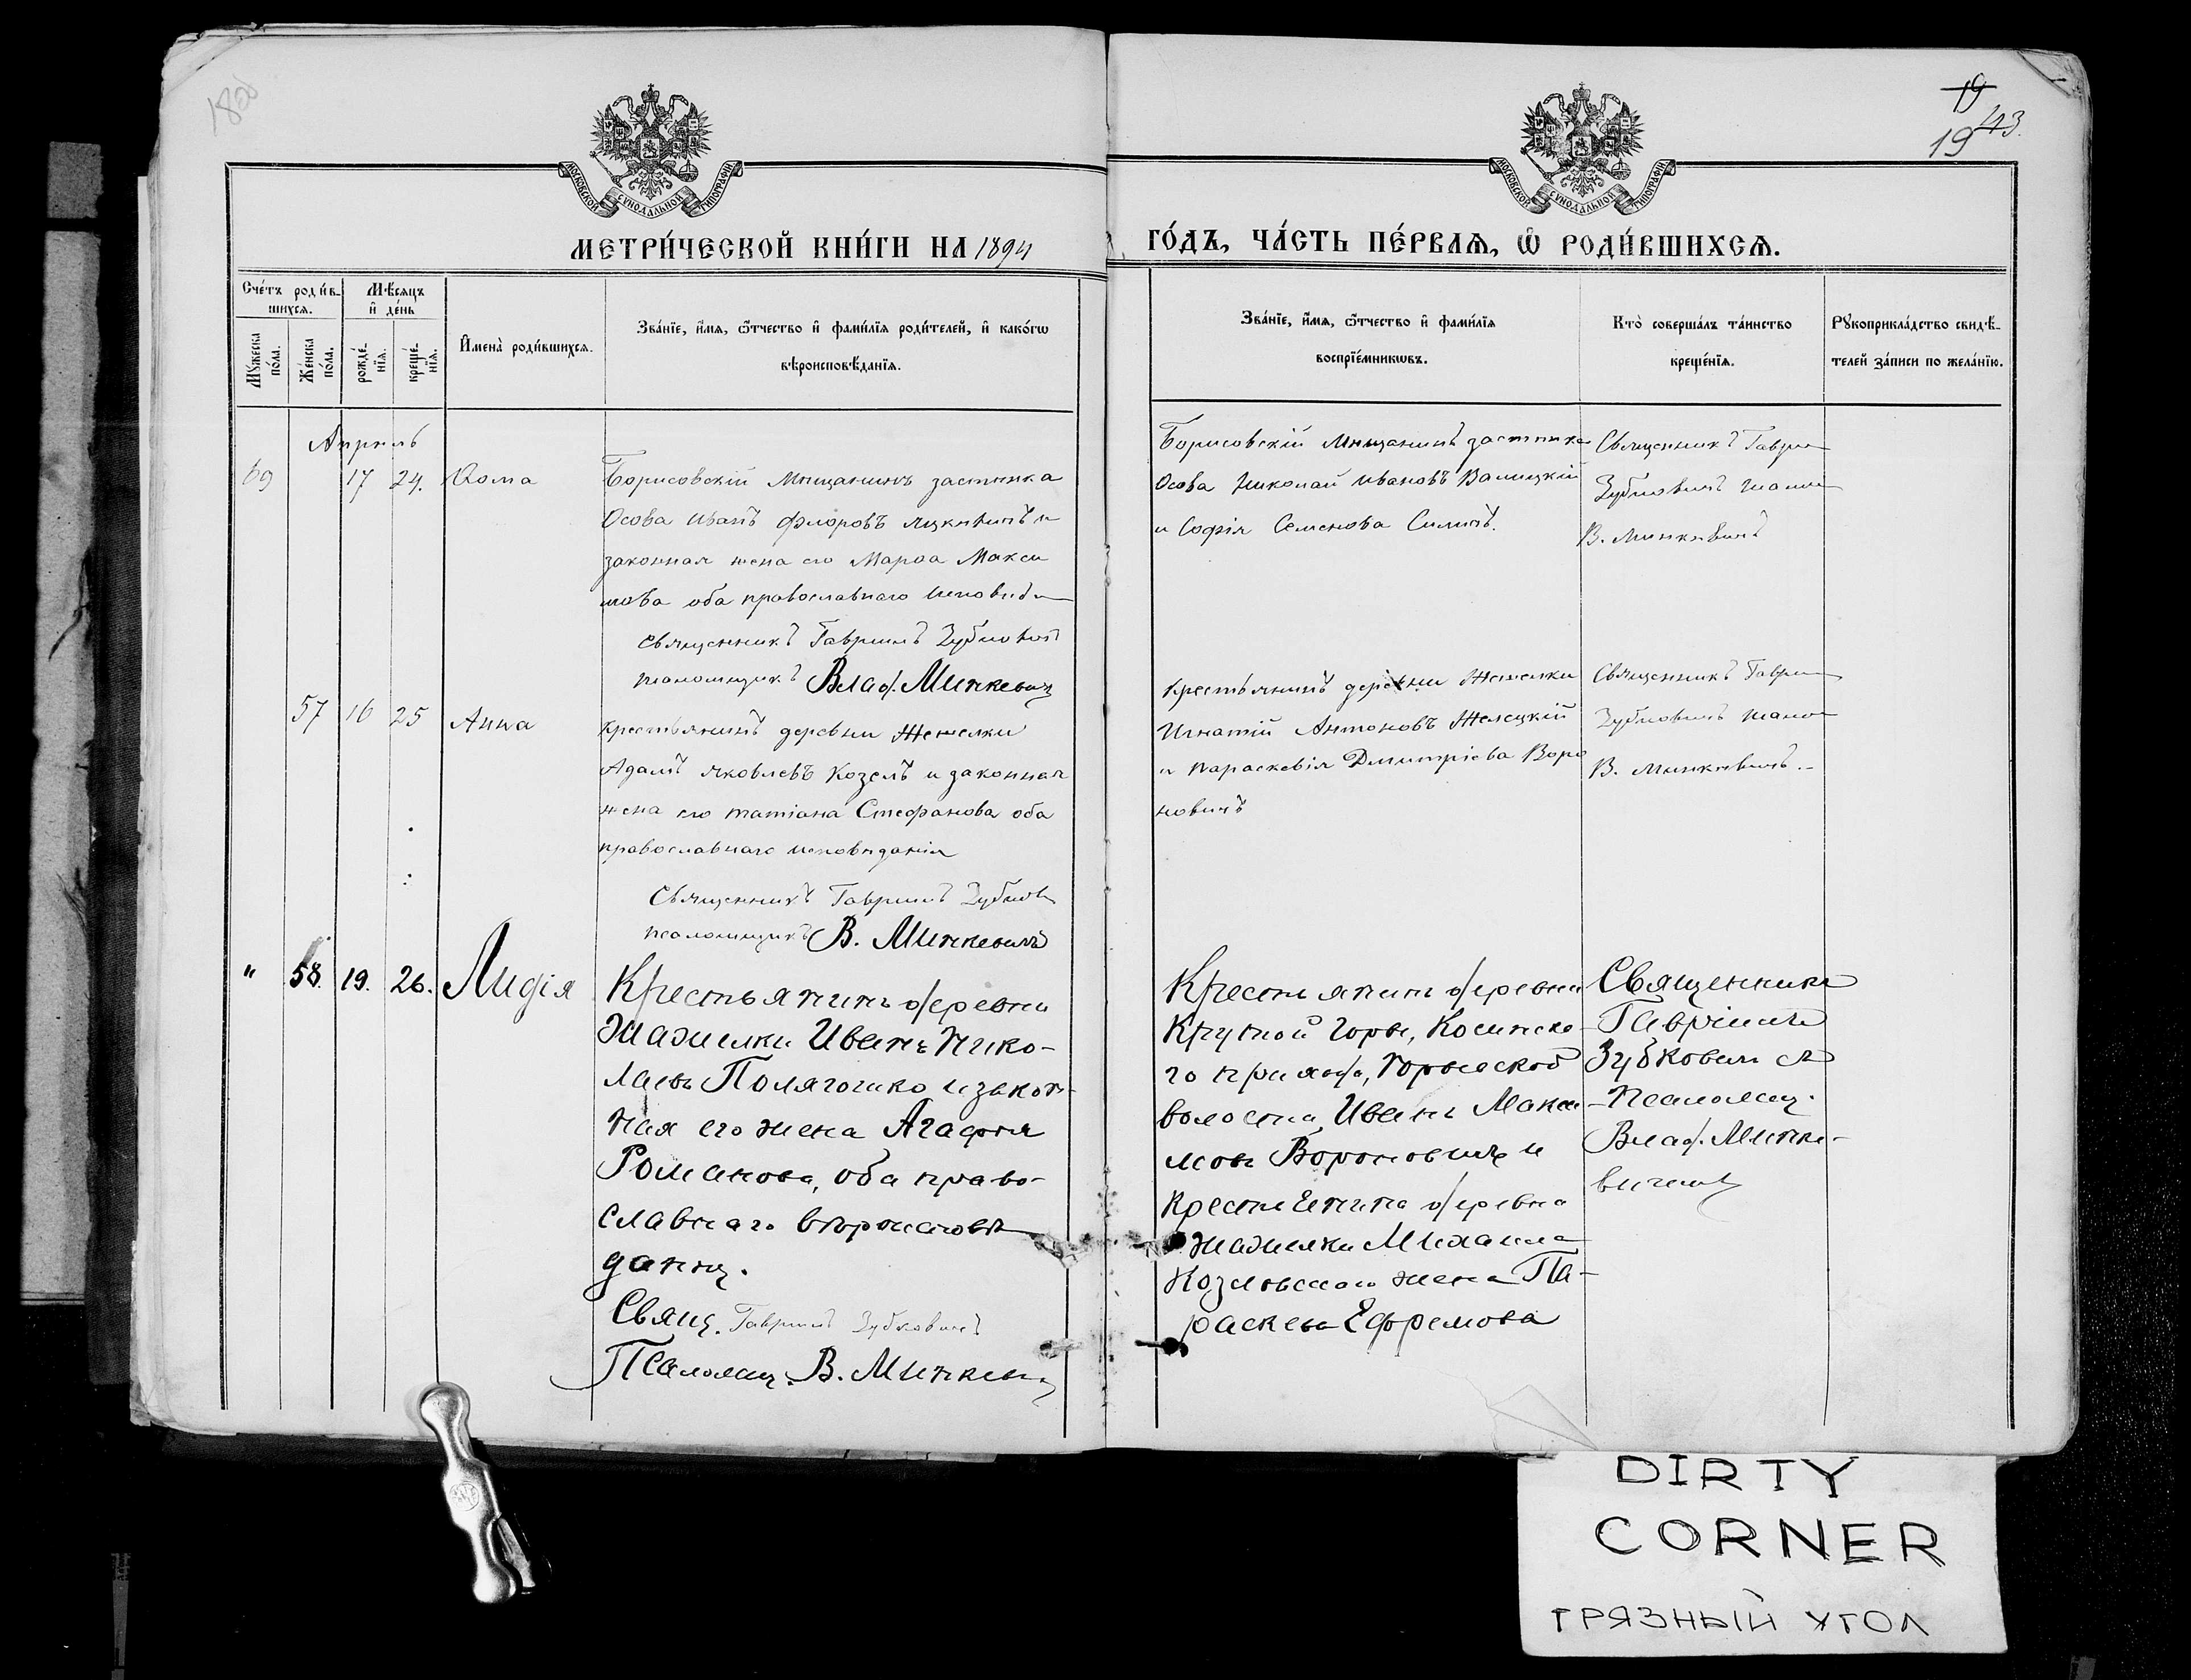 19
19 43.
МОСКОВСКОЙ СѴНОДАЛЬНОЙ ТИПОГРАФІИ
МОСКОВСКОЙ СѴНОДАЛЬНОЙ ТИПОГРАФІИ
МЕТРИ́ЧЕСКОЙ КНИ́ГИ НА 1894
ГО́ДЪ, ЧА́СТЬ ПЕ́РВАѦ, Ѽ РОДИ́ВШИХСѦ.
Сче́тъ роди́в-
шихсѧ.
Мѣ́сѧцъ
и҆ де́нь
Мꙋ́жеска
по́ла.
Же́нска
по́ла.
рожде́-
нїѧ.
креще́-
нїѧ.
И҆мена̀ роди́вшихсѧ.
Зва́нїе, и҆́мѧ, ѻ҆́тчество и҆ фами́лїѧ роди́телей, и҆ како́гѡ
вѣроисповѣ́данїѧ.
Зва́нїе, и҆́мѧ, ѻ҆́тчество и҆ фами́лїѧ
воспрїе́мникѡвъ.
Кто̀ соверша́лъ та́инство
креще́нїѧ.
Рꙋкоприкла́дство свидѣ́-
телей за́писи по жела́нїю.
Апрѣль
69 17 24. Ѳома
Борисовскій Мѣщанинъ застѣнка
Осова Иванъ Флоровъ и
законная жена его Марѳа Макси
мова оба православнаго исповѣд
Священникъ Гавріилъ Зубковичъ
псаломщикъ Влад. Минкевичъ
Борисовскій Мѣщанинъ застѣнка
Осова Николай Ивановъ Валицкій
и Софія Семенова
Священникъ Гаврі
Зубковичъ псалом
В. Минкевичъ
57 16 25 Анна
Крестьянинъ деревни Жежелки
Адамъ Яковлевъ Козелъ и законная
жена его Татіана Стефанова оба
православнаго исповѣданія
Священникъ Гавріилъ Зубков
псаломщикъ В. Минкевичъ
Крестьянинъ деревни Жежелки
Игнатій Антоновъ Желецкій
и Параскевія Дмитріева Воро
новичъ
Священникъ Гаврі
Зубковичъ псалом
В. Минкевичъ.-
" 58. 19. 26. Лидія
Крестьянинъ деревни
Жажелки Иванъ Нико-
лаевъ и закон-
ная его жена Агафія
Романова, оба право-
славнаго вѣроисповѣ
данія.
Свящ. Гавріилъ Зубковичъ
Псаломщ. В. Минкевич
Крестьянинъ деревни
Крутой Горы, Косинска-
го прихода,
волости, Иванъ Макси
мовъ Вороновичъ и
Крестьянина деревни
Жажелки Михаила
Козловскаго жена Па-
раскева Ефремова
Священникъ
Гавріилъ
Зубковичъ съ
Псаломщ.
Влад. Минке-
вичемъ
DIRTY
CORNER
ГРЯЗНЫЙ УГОЛ